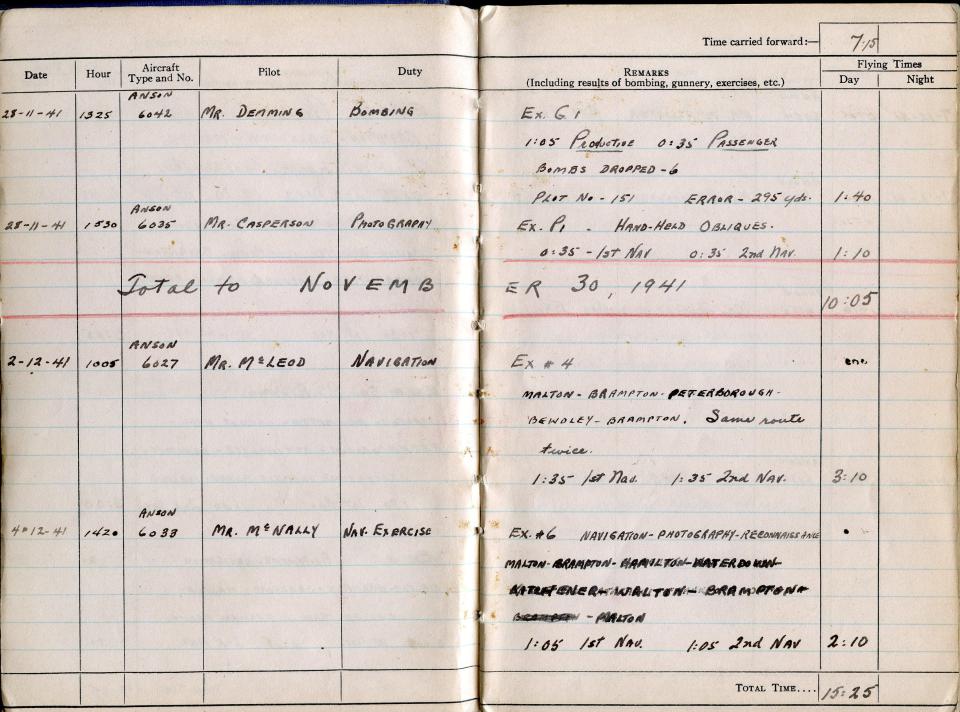 Time carried forward:— 7:15
Date Hour Aircraft Type and No. Pilot Duty REMARKS (Including results of bombing, gunnery, exercises, etc.) Flying Times Day Night
ANSON
28-11-41 1325 6042 MR. DEMMING BOMBING EX. G 1
1:05 PRODUCTIVE 0:35 PASSENGER
BOMBS DROPPED - 6
PLOT NO - 151 ERROR - 295 yds. 1:40
ANSON
28-11-41 1530 6035 MR. CASPERSON PHOTOGRAPHY EX. P1 - HAND-HELD OBLIQUES.
0:35 - 1st NAV 0:35 2nd NAV. 1:10
Total to NOVEMBER 30, 1941 10:05
ANSON
2-12-41 1005 6027 MR. McLEOD NAVIGATION EX # 4
MALTON - BRAMPTON - PETERBOROUGH -
BEWDLEY - BRAMPTON. Same route
twice.
1:35 1st Nav. 1:35 2nd NAV. 3:10
ANSON
4-12-41 1420 6033 MR. McNALLY NAV. EXERCISE EX. #6 NAVIGATION - PHOTOGRAPHY - RECONNAISSANCE
MALTON - BRAMPTON - HAMILTON - WATERDOWN -
KITCHENER - WALTON - BRAMPTON -
- MALTON
1:05 1st NAV. 1:05 2nd NAV 2:10
TOTAL TIME.... 15:25